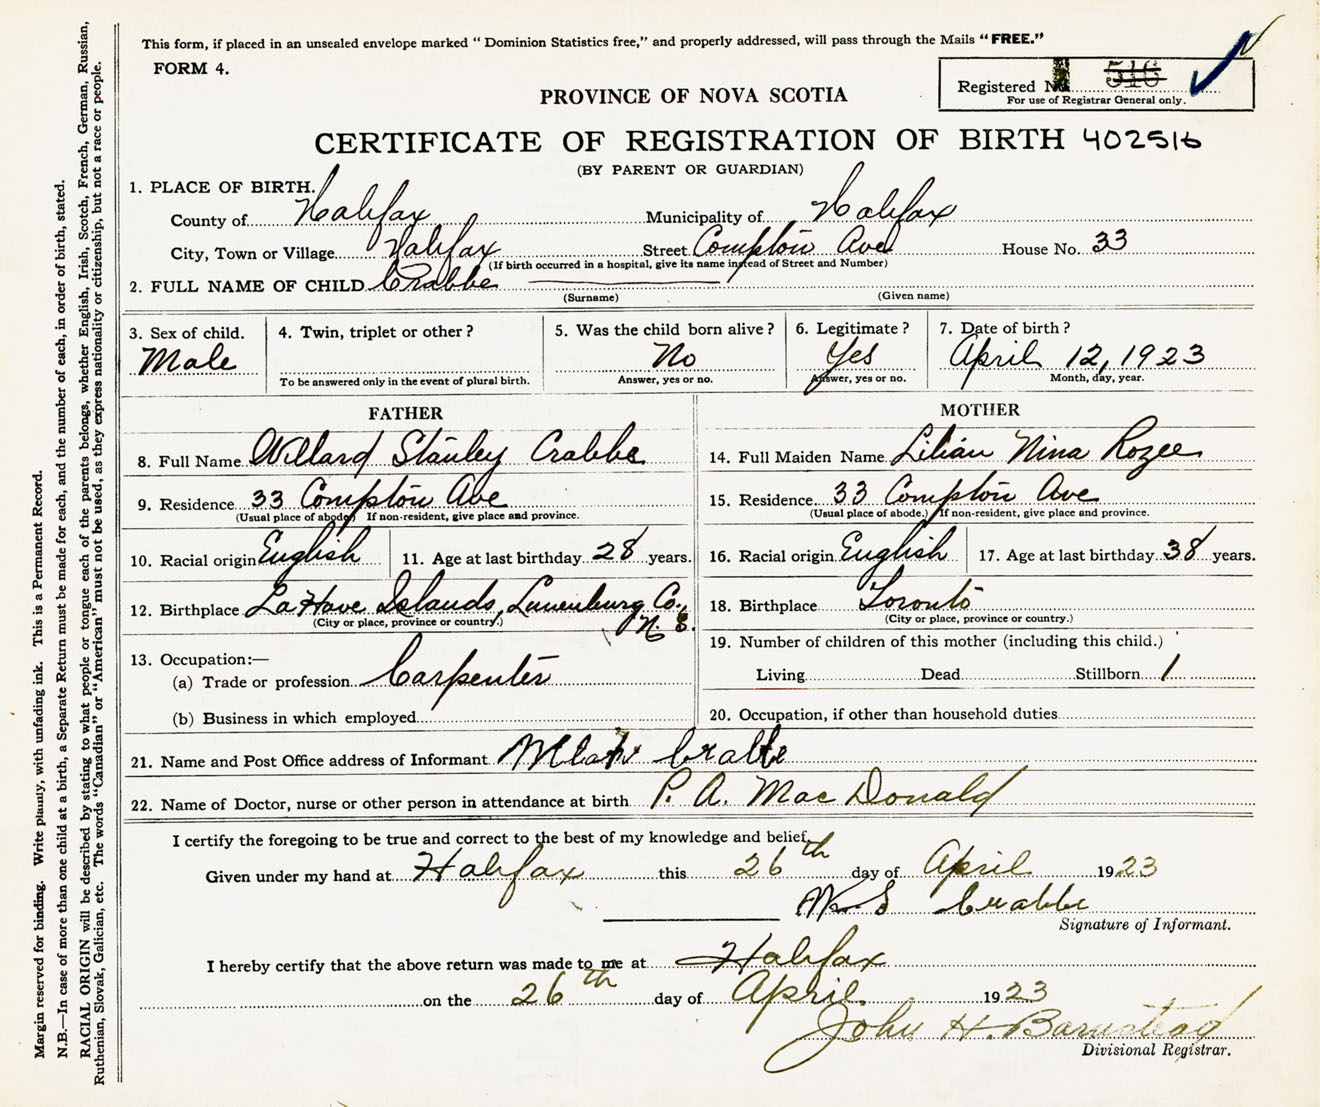 This form, if placed in an unsealed envelope marked “ Dominion Statistics free,” and properly addressed, will pass through the Mails “ FREE.”
FORM 4.
Registered No. 516
For use of Registrar General only.
PROVINCE OF NOVA SCOTIA
CERTIFICATE OF REGISTRATION OF BIRTH 402516
(BY PARENT OR GUARDIAN)
1. PLACE OF BIRTH.
County of Halifax Municipality of Halifax
City, Town or Village Halifax Street Compton Ave House No. 33
(If birth occurred in a hospital, give its name instead of Street and Number)
2. FULL NAME OF CHILD Crabbe
(Surname) (Given name)
3. Sex of child. 4. Twin, triplet or other ? 5. Was the child born alive ? 6. Legitimate ? 7. Date of birth ?
Male No Yes April 12, 1923
To be answered only in the event of plural birth. Answer, yes or no. Answer, yes or no. Month, day, year.
FATHER MOTHER
8. Full Name Willard Stanley Crabbe 14. Full Maiden Name Lilian Nina Rozee
9. Residence 33 Compton Ave 15. Residence 33 Compton Ave
(Usual place of abode) If non-resident, give place and province. (Usual place of abode.) If non-resident, give place and province.
10. Racial origin English 11. Age at last birthday 28 years. 16. Racial origin English 17. Age at last birthday 38 years.
12. Birthplace LaHave Islands, Lunenburg Co., N.S. 18. Birthplace Toronto
(City or place, province or country.) (City or place, province or country.)
13. Occupation:— 19. Number of children of this mother (including this child.)
(a) Trade or profession Carpenter Living Dead Stillborn 1
(b) Business in which employed 20. Occupation, if other than household duties
21. Name and Post Office address of Informant Crabbe
22. Name of Doctor, nurse or other person in attendance at birth P. A. MacDonald
I certify the foregoing to be true and correct to the best of my knowledge and belief.
Given under my hand at Halifax this 26th day of April 1923
S Crabbe
Signature of Informant.
I hereby certify that the above return was made to me at Halifax
on the 26th day of April 1923
John H. Barnstead
Divisional Registrar.
Margin reserved for binding. Write plainly, with unfading ink. This is a Permanent Record.
N.B.—In case of more than one child at a birth, a Separate Return must be made for each, and the number of each, in order of birth, stated.
RACIAL ORIGIN will be described by stating to what people or tongue each of the parents belongs, whether English, Irish, Scotch, French, German, Russian,
Ruthenian, Slovak, Galician, etc. The words “Canadian” or “American” must not be used, as they express nationality or citizenship, but not a race or people.